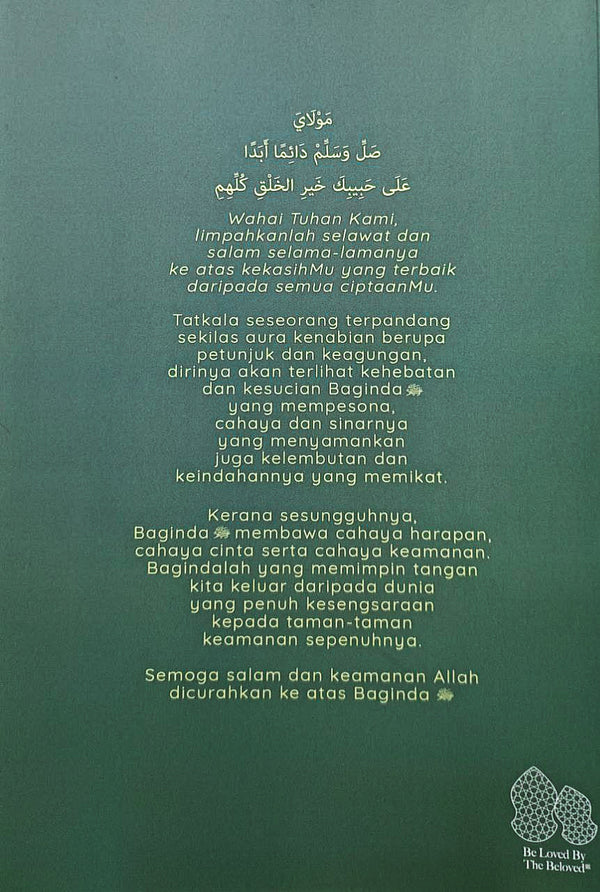 مَوْلَايَ
صَلِّ وَسَلِّمْ دَائِمًا أَبَدًا
عَلَى حَبِيبِكَ خَيرِ الخَلْقِ كُلِّهِمِ
Wahai Tuhan Kami,
limpahkanlah selawat dan
salam selama-lamanya
ke atas kekasihMu yang terbaik
daripada semua ciptaanMu.
Tatkala seseorang terpandang
sekilas aura kenabian berupa
petunjuk dan keagungan,
dirinya akan terlihat kehebatan
dan kesucian Baginda ﷺ
yang mempesona,
cahaya dan sinarnya
yang menyamankan
juga kelembutan dan
keindahannya yang memikat.
Kerana sesungguhnya,
Baginda ﷺ membawa cahaya harapan,
cahaya cinta serta cahaya keamanan.
Bagindalah yang memimpin tangan
kita keluar daripada dunia
yang penuh kesengsaraan
kepada taman-taman
keamanan sepenuhnya.
Semoga salam dan keamanan Allah
dicurahkan ke atas Baginda ﷺ
Be Loved By
The Beloved